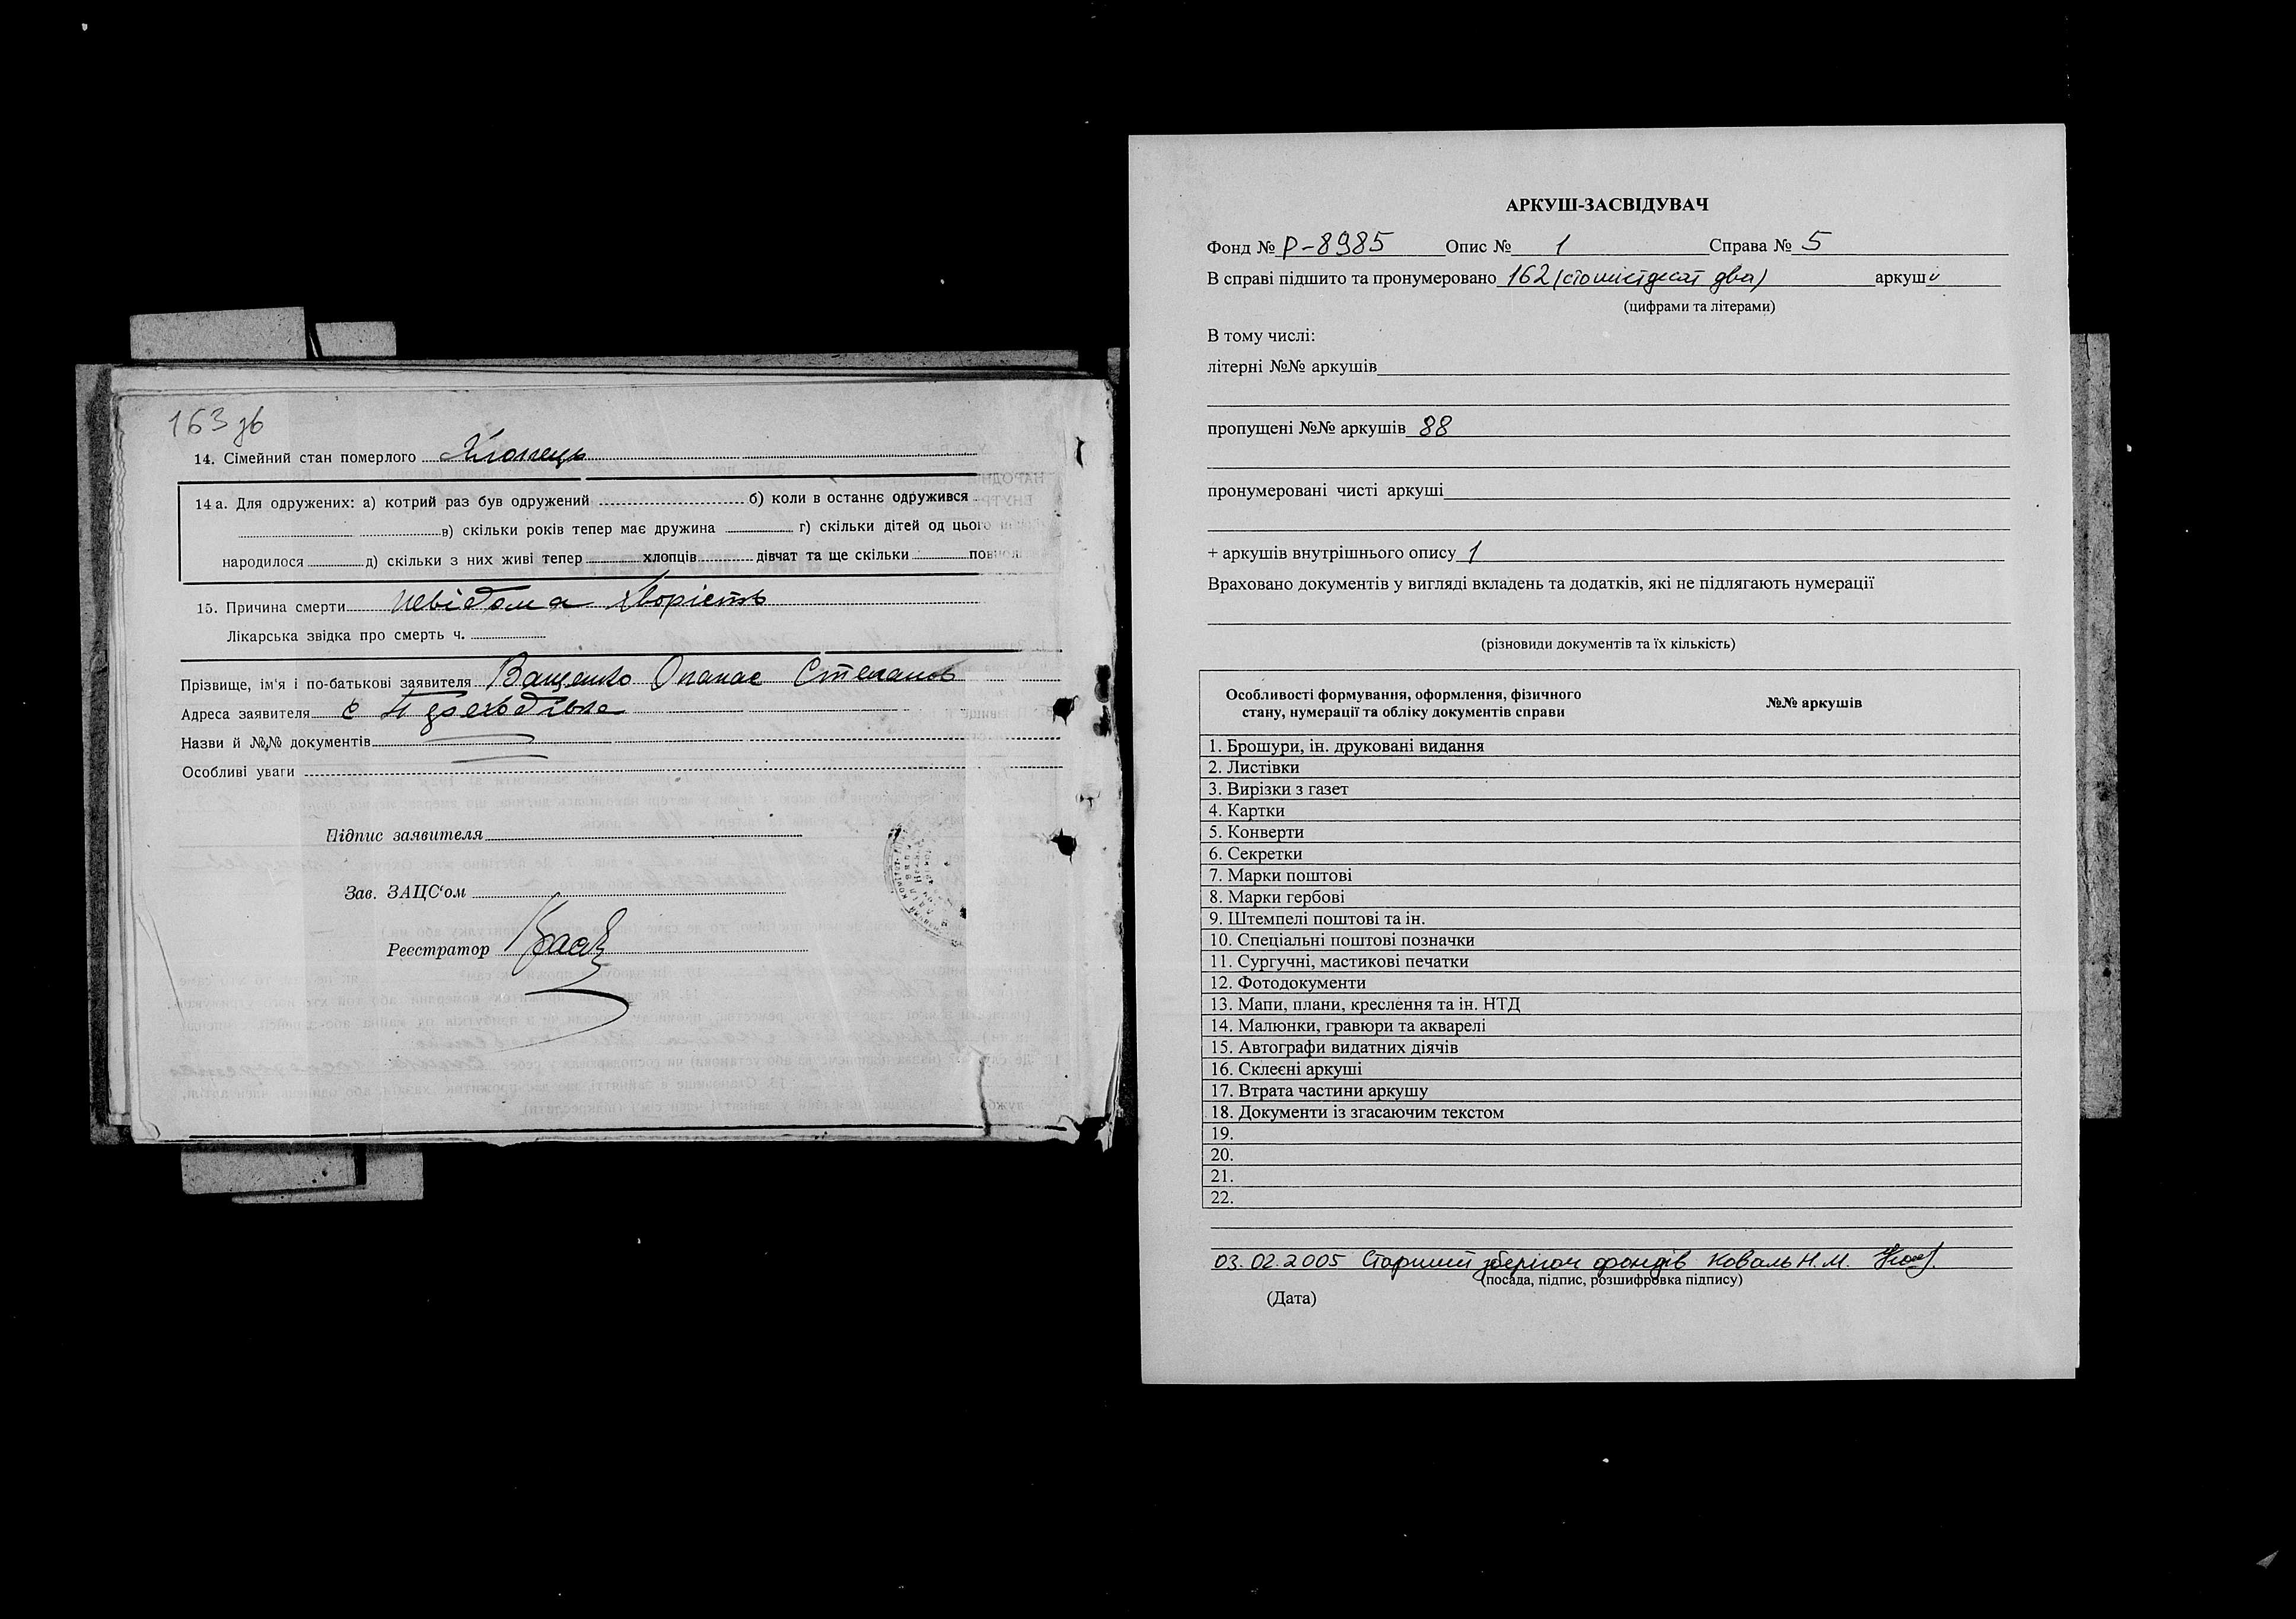 163 зв
14. Сімейний стан померлого Хлопець
14 а. Для одружених: а) котрий раз був одружений б) коли в останнє одружився
в) скільки років тепер має дружина г) скільки дітей од цього
народилося д) скільки з них живі тепер хлопців дівчат та ще скільки
15. Причина смерти невідома хворість
Лікарська звідка про смерть ч.
Прізвище, ім'я і по-батькові заявителя Ващенко Опанас Степанов
Адреса заявителя с
Назви й №№ документів
Особливі уваги
Підпис заявителя
Зав. ЗАЦС'ом
Реєстратор
АРКУШ-ЗАСВІДУВАЧ
Фонд № Р-8985 Опис № 1 Справа № 5
В справі підшито та пронумеровано 162 (сто шістдесят два) аркуші
(цифрами та літерами)
В тому числі:
літерні №№ аркушів
пропущені №№ аркушів 88
пронумеровані чисті аркуші
+ аркушів внутрішнього опису 1
Враховано документів у вигляді вкладень та додатків, які не підлягають нумерації
(різновиди документів та їх кількість)
Особливості формування, оформлення, фізичного
стану, нумерації та обліку документів справи
№№ аркушів
1. Брошури, ін. друковані видання
2. Листівки
3. Вирізки з газет
4. Картки
5. Конверти
6. Секретки
7. Марки поштові
8. Марки гербові
9. Штемпелі поштові та ін.
10. Спеціальні поштові позначки
11. Сургучні, мастикові печатки
12. Фотодокументи
13. Мапи, плани, креслення та ін. НТД
14. Малюнки, гравюри та акварелі
15. Автографи видатних діячів
16. Склеєні аркуші
17. Втрата частини аркушу
18. Документи із згасаючим текстом
19.
20.
21.
22.
03.02.2005 Старший зберігач фондів Коваль Н.М.
(посада, підпис, розшифровка підпису)
(Дата)